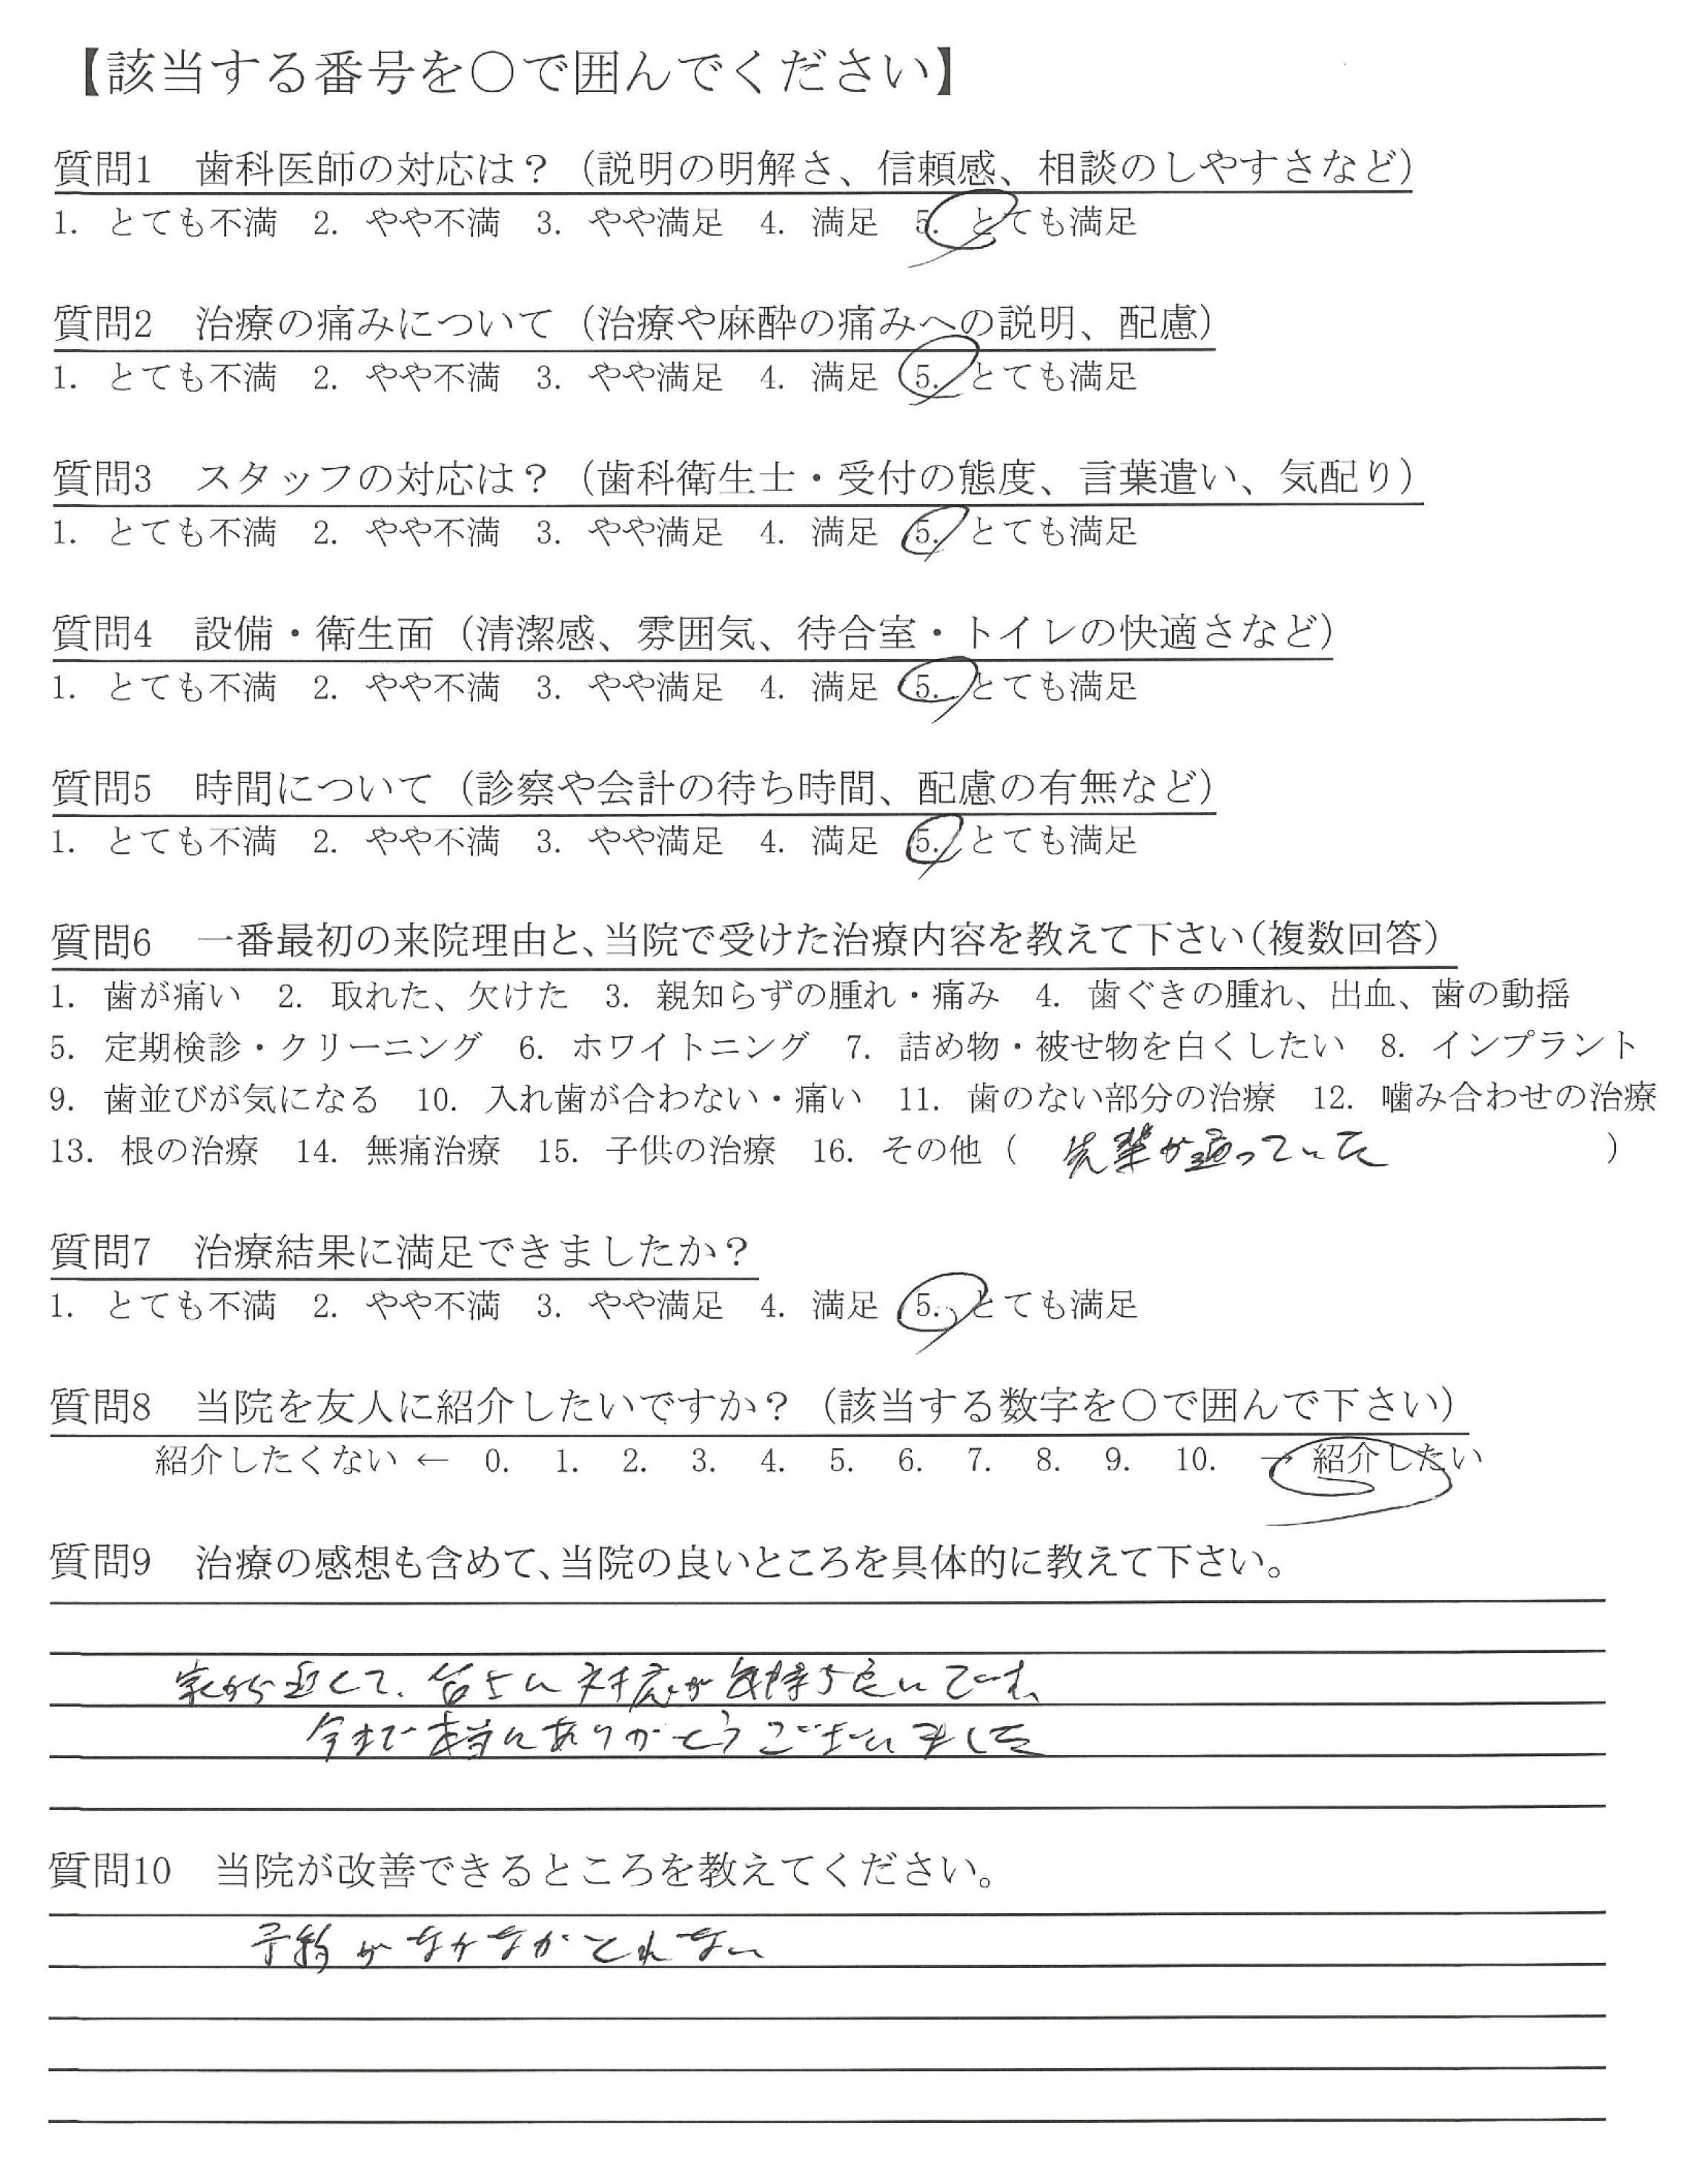 【該当する番号を〇で囲んでください】
質問1　歯科医師の対応は？（説明の明解さ、信頼感、相談のしやすさなど）
1. とても不満　2. やや不満　3. やや満足　4. 満足　5. とても満足
質問2　治療の痛みについて（治療や麻酔の痛みへの説明、配慮）
1. とても不満　2. やや不満　3. やや満足　4. 満足　5. とても満足
質問3　スタッフの対応は？（歯科衛生士・受付の態度、言葉遣い、気配り）
1. とても不満　2. やや不満　3. やや満足　4. 満足　5. とても満足
質問4　設備・衛生面（清潔感、雰囲気、待合室・トイレの快適さなど）
1. とても不満　2. やや不満　3. やや満足　4. 満足　5. とても満足
質問5　時間について（診察や会計の待ち時間、配慮の有無など）
1. とても不満　2. やや不満　3. やや満足　4. 満足　5. とても満足
質問6　一番最初の来院理由と、当院で受けた治療内容を教えて下さい（複数回答）
1. 歯が痛い　2. 取れた、欠けた　3. 親知らずの腫れ・痛み　4. 歯ぐきの腫れ、出血、歯の動揺
5. 定期検診・クリーニング　6. ホワイトニング　7. 詰め物・被せ物を白くしたい　8. インプラント
9. 歯並びが気になる　10. 入れ歯が合わない・痛い　11. 歯のない部分の治療　12. 噛み合わせの治療
13. 根の治療　14. 無痛治療　15. 子供の治療　16. その他（　先輩が通っていた　）
質問7　治療結果に満足できましたか？
1. とても不満　2. やや不満　3. やや満足　4. 満足　5. とても満足
質問8　当院を友人に紹介したいですか？（該当する数字を〇で囲んで下さい）
紹介したくない ← 0. 1. 2. 3. 4. 5. 6. 7. 8. 9. 10. → 紹介したい
質問9　治療の感想も含めて、当院の良いところを具体的に教えて下さい。
家から近くて、対応が気持ち良いです。
今まで本当にありがとうございました
質問10　当院が改善できるところを教えてください。
予約がなかなかとれない